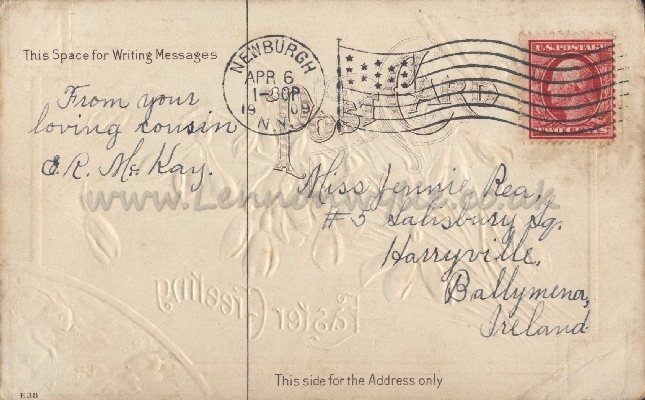 This Space for Writing Messages
NEWBURGH
APR 6
1-30P
1909
N.Y.
POST CARD
U.S. POSTAGE
TWO CENTS
From your
loving cousin
E. R. McKay.
www.Lennonwylie.co.uk
Miss Jennie Rea,
#5 Salisbury Sq.
Harryville,
Ballymena,
Ireland
Easter Greeting
This side for the Address only
E38